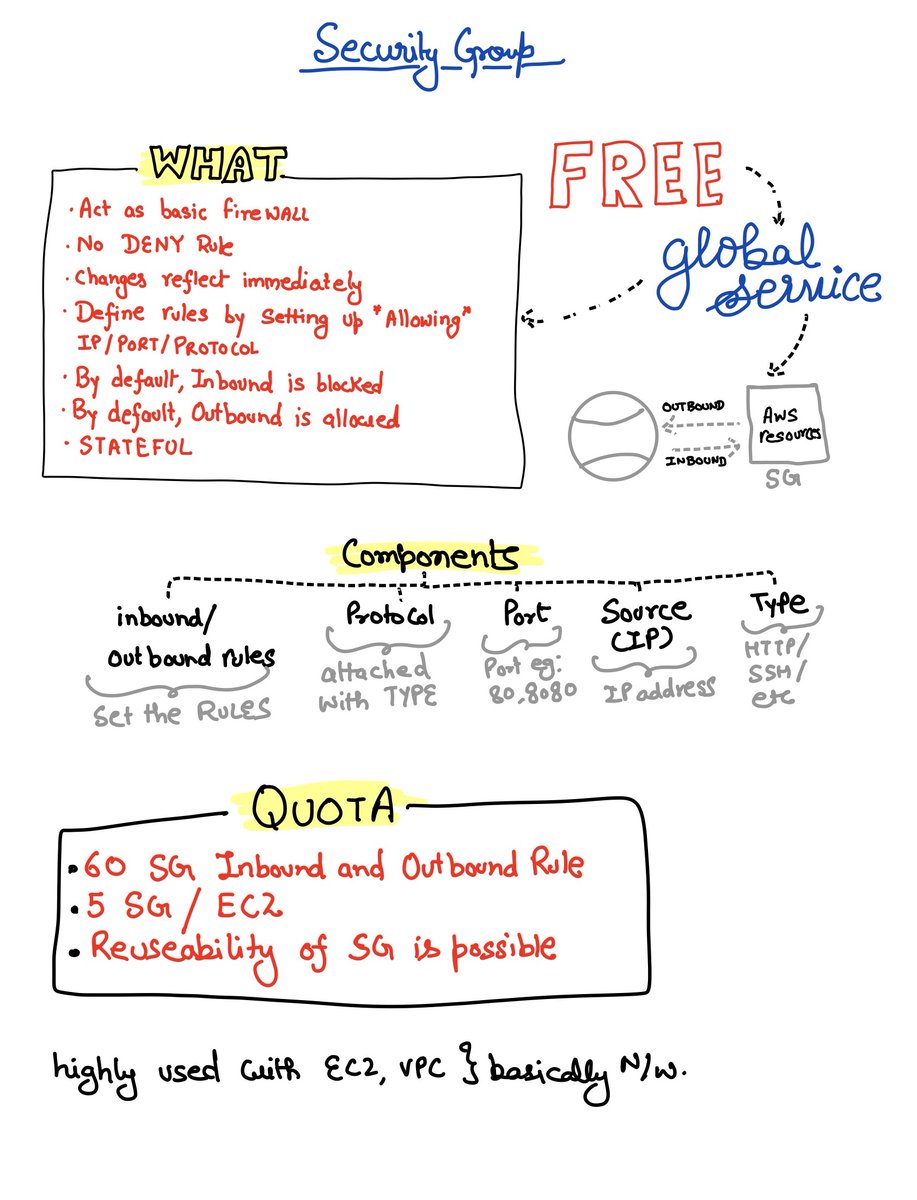 Security Group
WHAT
· Act as basic fireWALL
· No DENY Rule
· Changes reflect immediately
· Define rules by setting up "Allowing"
IP/PORT/PROTOCOL
· By default, Inbound is blocked
· By default, Outbound is allowed
· STATEFUL
FREE
global
service
OUTBOUND
INBOUND
AWS
resources
SG
Components
inbound/
Outbound rules
Set the RULES
Protocol
attached
with TYPE
Port
Port eg:
80,8080
Source
(IP)
IP address
Type
HTTP/
SSH/
etc
QUOTA
• 60 SG Inbound and Outbound Rule
• 5 SG / EC2
• Reuseability of SG is possible
highly used with EC2, VPC } basically N/w.